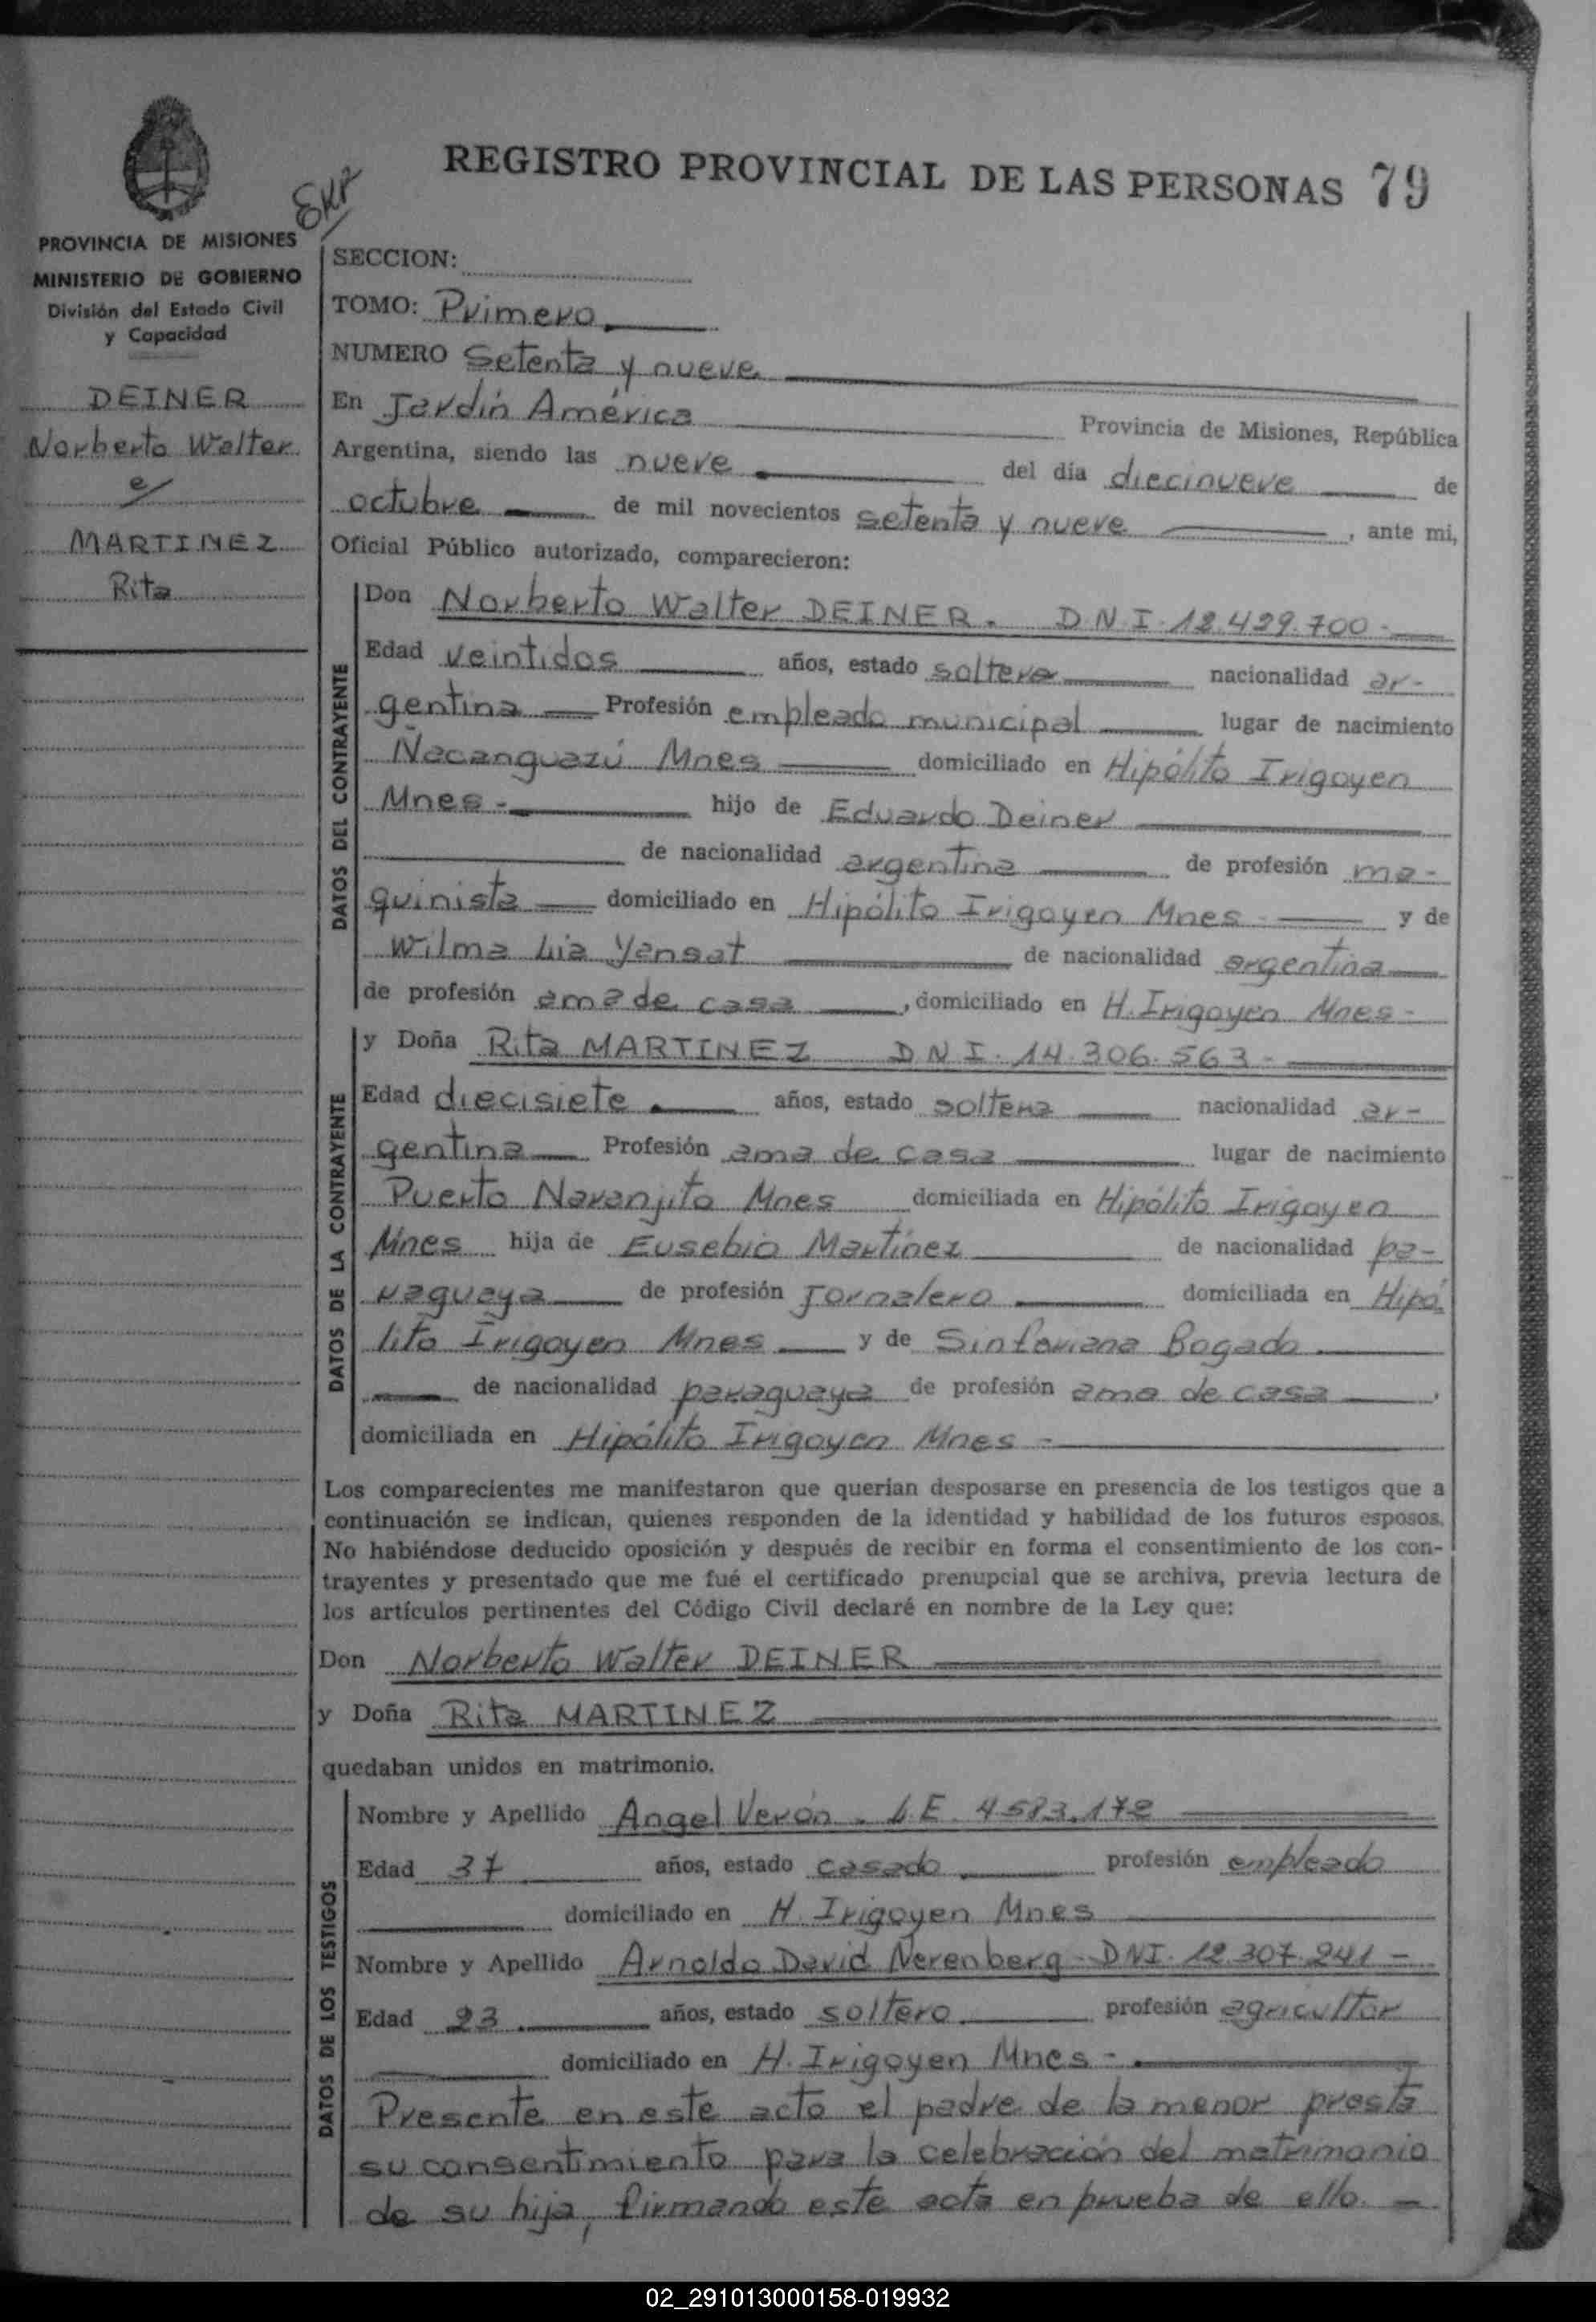 REGISTRO PROVINCIAL DE LAS PERSONAS 79
PROVINCIA DE MISIONES
MINISTERIO DE GOBIERNO
División del Estado Civil
y Capacidad
DEINER
Norberto Walter
e/
MARTINEZ
Rita
SECCION:
TOMO: Primero.
NUMERO Setenta y nueve.
En Jardín América Provincia de Misiones, República
Argentina, siendo las nueve del día diecinueve de
octubre de mil novecientos setenta y nueve, ante mi,
Oficial Público autorizado, comparecieron:
DATOS DEL CONTRAYENTE
Don Norberto Walter DEINER. D.N.I. 12.429.700.-
Edad veintidos años, estado soltero nacionalidad ar-
gentina Profesión empleado municipal lugar de nacimiento
Ñacanguazú Mnes domiciliado en Hipólito Irigoyen
Mnes.- hijo de Eduardo Deiner
de nacionalidad argentina de profesión ma-
quinista domiciliado en Hipólito Irigoyen Mnes y de
Wilma Lia Yensat de nacionalidad argentina
de profesión ama de casa, domiciliado en H. Irigoyen Mnes-
DATOS DE LA CONTRAYENTE
y Doña Rita MARTINEZ D.N.I. 14.306.563-
Edad diecisiete. años, estado soltera nacionalidad ar-
gentina Profesión ama de casa lugar de nacimiento
Puerto Naranjito Mnes domiciliada en Hipólito Irigoyen
Mnes hija de Eusebio Martínez de nacionalidad pa-
raguaya de profesión Jornalero domiciliada en Hipó
lito Irigoyen Mnes y de Sinforiana Bogado
de nacionalidad paraguaya de profesión ama de casa,
domiciliada en Hipólito Irigoyen Mnes-
Los comparecientes me manifestaron que querían desposarse en presencia de los testigos que a
continuación se indican, quienes responden de la identidad y habilidad de los futuros esposos.
No habiéndose deducido oposición y después de recibir en forma el consentimiento de los con-
trayentes y presentado que me fué el certificado prenupcial que se archiva, previa lectura de
los artículos pertinentes del Código Civil declaré en nombre de la Ley que:
Don Norberto Walter DEINER
y Doña Rita MARTINEZ
quedaban unidos en matrimonio.
DATOS DE LOS TESTIGOS
Nombre y Apellido Angel Verón. L.E. 4583.172
Edad 37 años, estado casado. profesión empleado
domiciliado en H. Irigoyen Mnes
Nombre y Apellido Arnoldo David Nerenberg-DNI. 12.307.241-
Edad 23 años, estado soltero. profesión agricultor
domiciliado en H. Irigoyen Mnes-
Presente en este acto el padre de la menor presta
su consentimiento para la celebración del matrimonio
de su hija, firmando este acta en prueba de ello.-
02_291013000158-019932